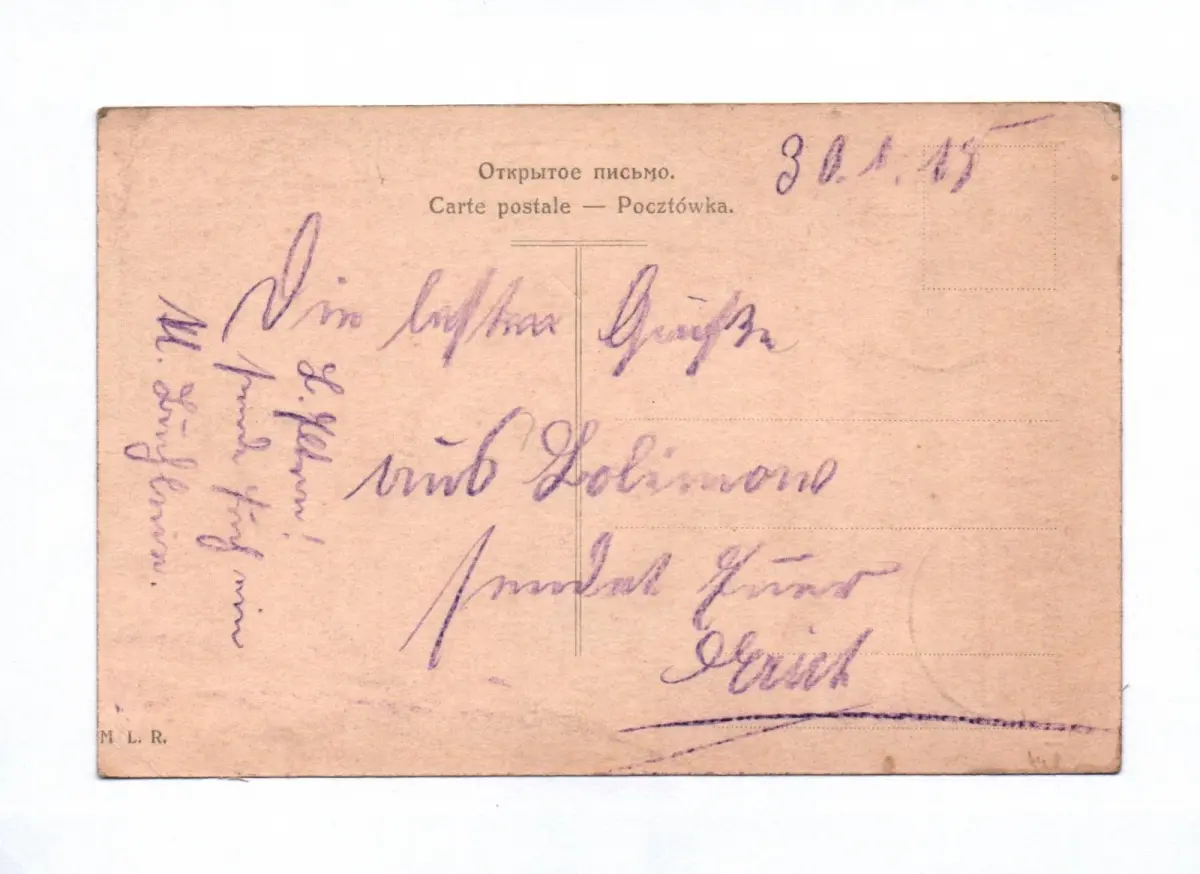 Открытое письмо.
Carte postale — Pocztówka.
30.1.15
Die letzten Grüße
aus Bolimow
sendet Euer
Erich
L. Eltern!
sende Euch ein
M. L. R.